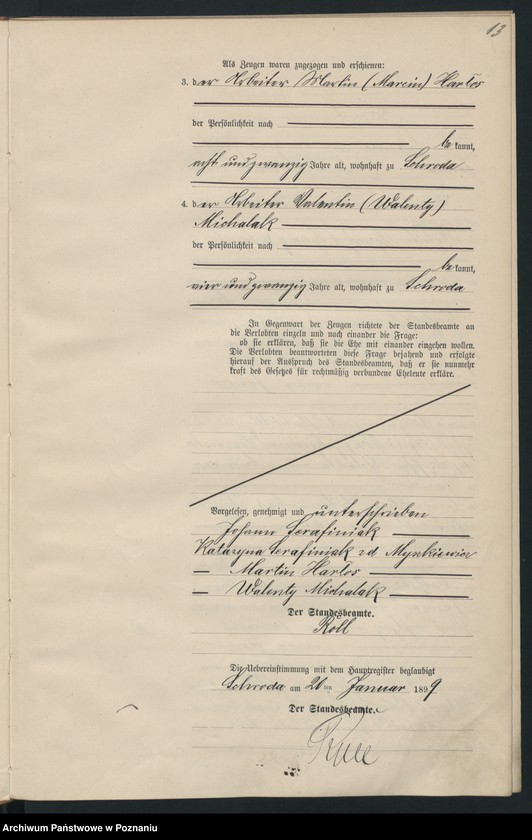 13
Als Zeugen waren zugezogen und erschienen:
3. der Arbeiter Martin (Marcin) Harłos
der Persönlichkeit nach
be kannt,
acht und zwanzig Jahre alt, wohnhaft zu Schroda
4. der Arbeiter Valentin (Walenty)
Michalak
der Persönlichkeit nach
be kannt,
vier und zwanzig Jahre alt, wohnhaft zu Schroda
In Gegenwart der Zeugen richtete der Standesbeamte an
die Verlobten einzeln und nach einander die Frage:
ob sie erklären, daß sie die Ehe mit einander eingehen wollen.
Die Verlobten beantworteten diese Frage bejahend und erfolgte
hierauf der Ausspruch des Standesbeamten, daß er sie nunmehr
kraft des Gesetzes für rechtmäßig verbundene Eheleute erkläre.
Vorgelesen, genehmigt und unterschrieben
Johann Serafiniak
Katarzyna Serafiniak zd Mynkiewicz
Martin Harłos
Walenty Michalak
Der Standesbeamte.
Roll
Die Uebereinstimmung mit dem Hauptregister beglaubigt
Schroda am ten Januar 1899
Der Standesbeamte.
Archiwum Państwowe w Poznaniu